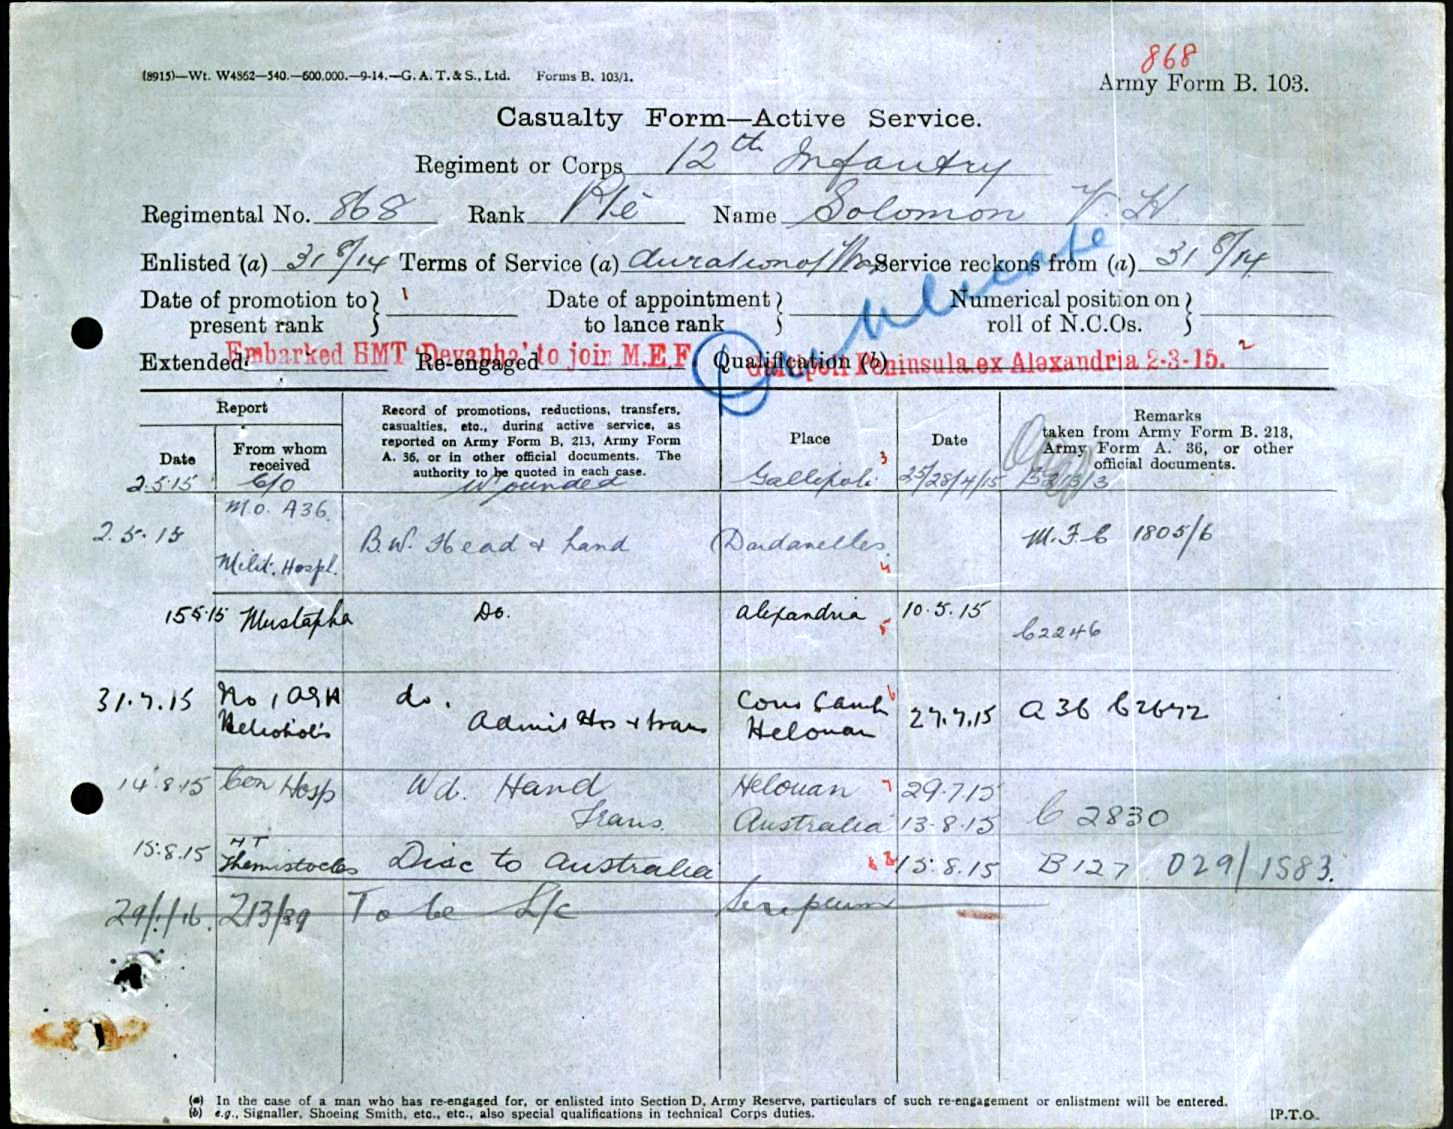 868
(8915)—Wt. W4862—540.—600,000.—9-14.—G. A. T. & S., Ltd. Forms B. 103/1.
Army Form B. 103.
Casualty Form—Active Service.
Regiment or Corps 12th Infantry
Regimental No. 868 Rank Pte Name Solomon V. H
Enlisted (a) 31 8/14 Terms of Service (a) duration of War Service reckons from (a) 31 8/14
Duplicate
Date of promotion to present rank } 1 Date of appointment to lance rank } Numerical position on roll of N.C.Os. }
Extended Re-engaged Qualification (b) 2
Embarked HMT 'Devanha' to join M.E.F. Gallipoli Peninsula ex Alexandria 2-3-15.
Report
Date
From whom received
Record of promotions, reductions, transfers, casualties, etc., during active service, as reported on Army Form B, 213, Army Form A. 36, or in other official documents. The authority to be quoted in each case.
Place
Date
Remarks taken from Army Form B. 213, Army Form A. 36, or other official documents.
2.5.15 C/O Wounded Gallipoli 3 25/28/4/15 B313/3
2.5.15 M.O. A36. Milit. Hospl. B.W. Head & hand (Dardanelles. 4 M.F.C 1805/6
15 5 15 Mustapha Do. Alexandria 5 10.5.15 C2246
31.7.15 No 1 AGH Heliopolis do. Admit Hos & trans Con Camp Helouan 6 27.7.15 A36 C2672
14.8.15 Con Hosp Wd. Hand Helouan 7 29.7.15
Trans. Australia 13.8.15 C 2830
15.8.15 HT Themistocles Disc to Australia 8 15.8.15 B127 029/1583.
29/1/16. 213/89 To be L/c Serapeum
(a) In the case of a man who has re-engaged for, or enlisted into Section D, Army Reserve, particulars of such re-engagement or enlistment will be entered.
(b) e.g., Signaller, Shoeing Smith, etc., etc., also special qualifications in technical Corps duties.
[P.T.O.